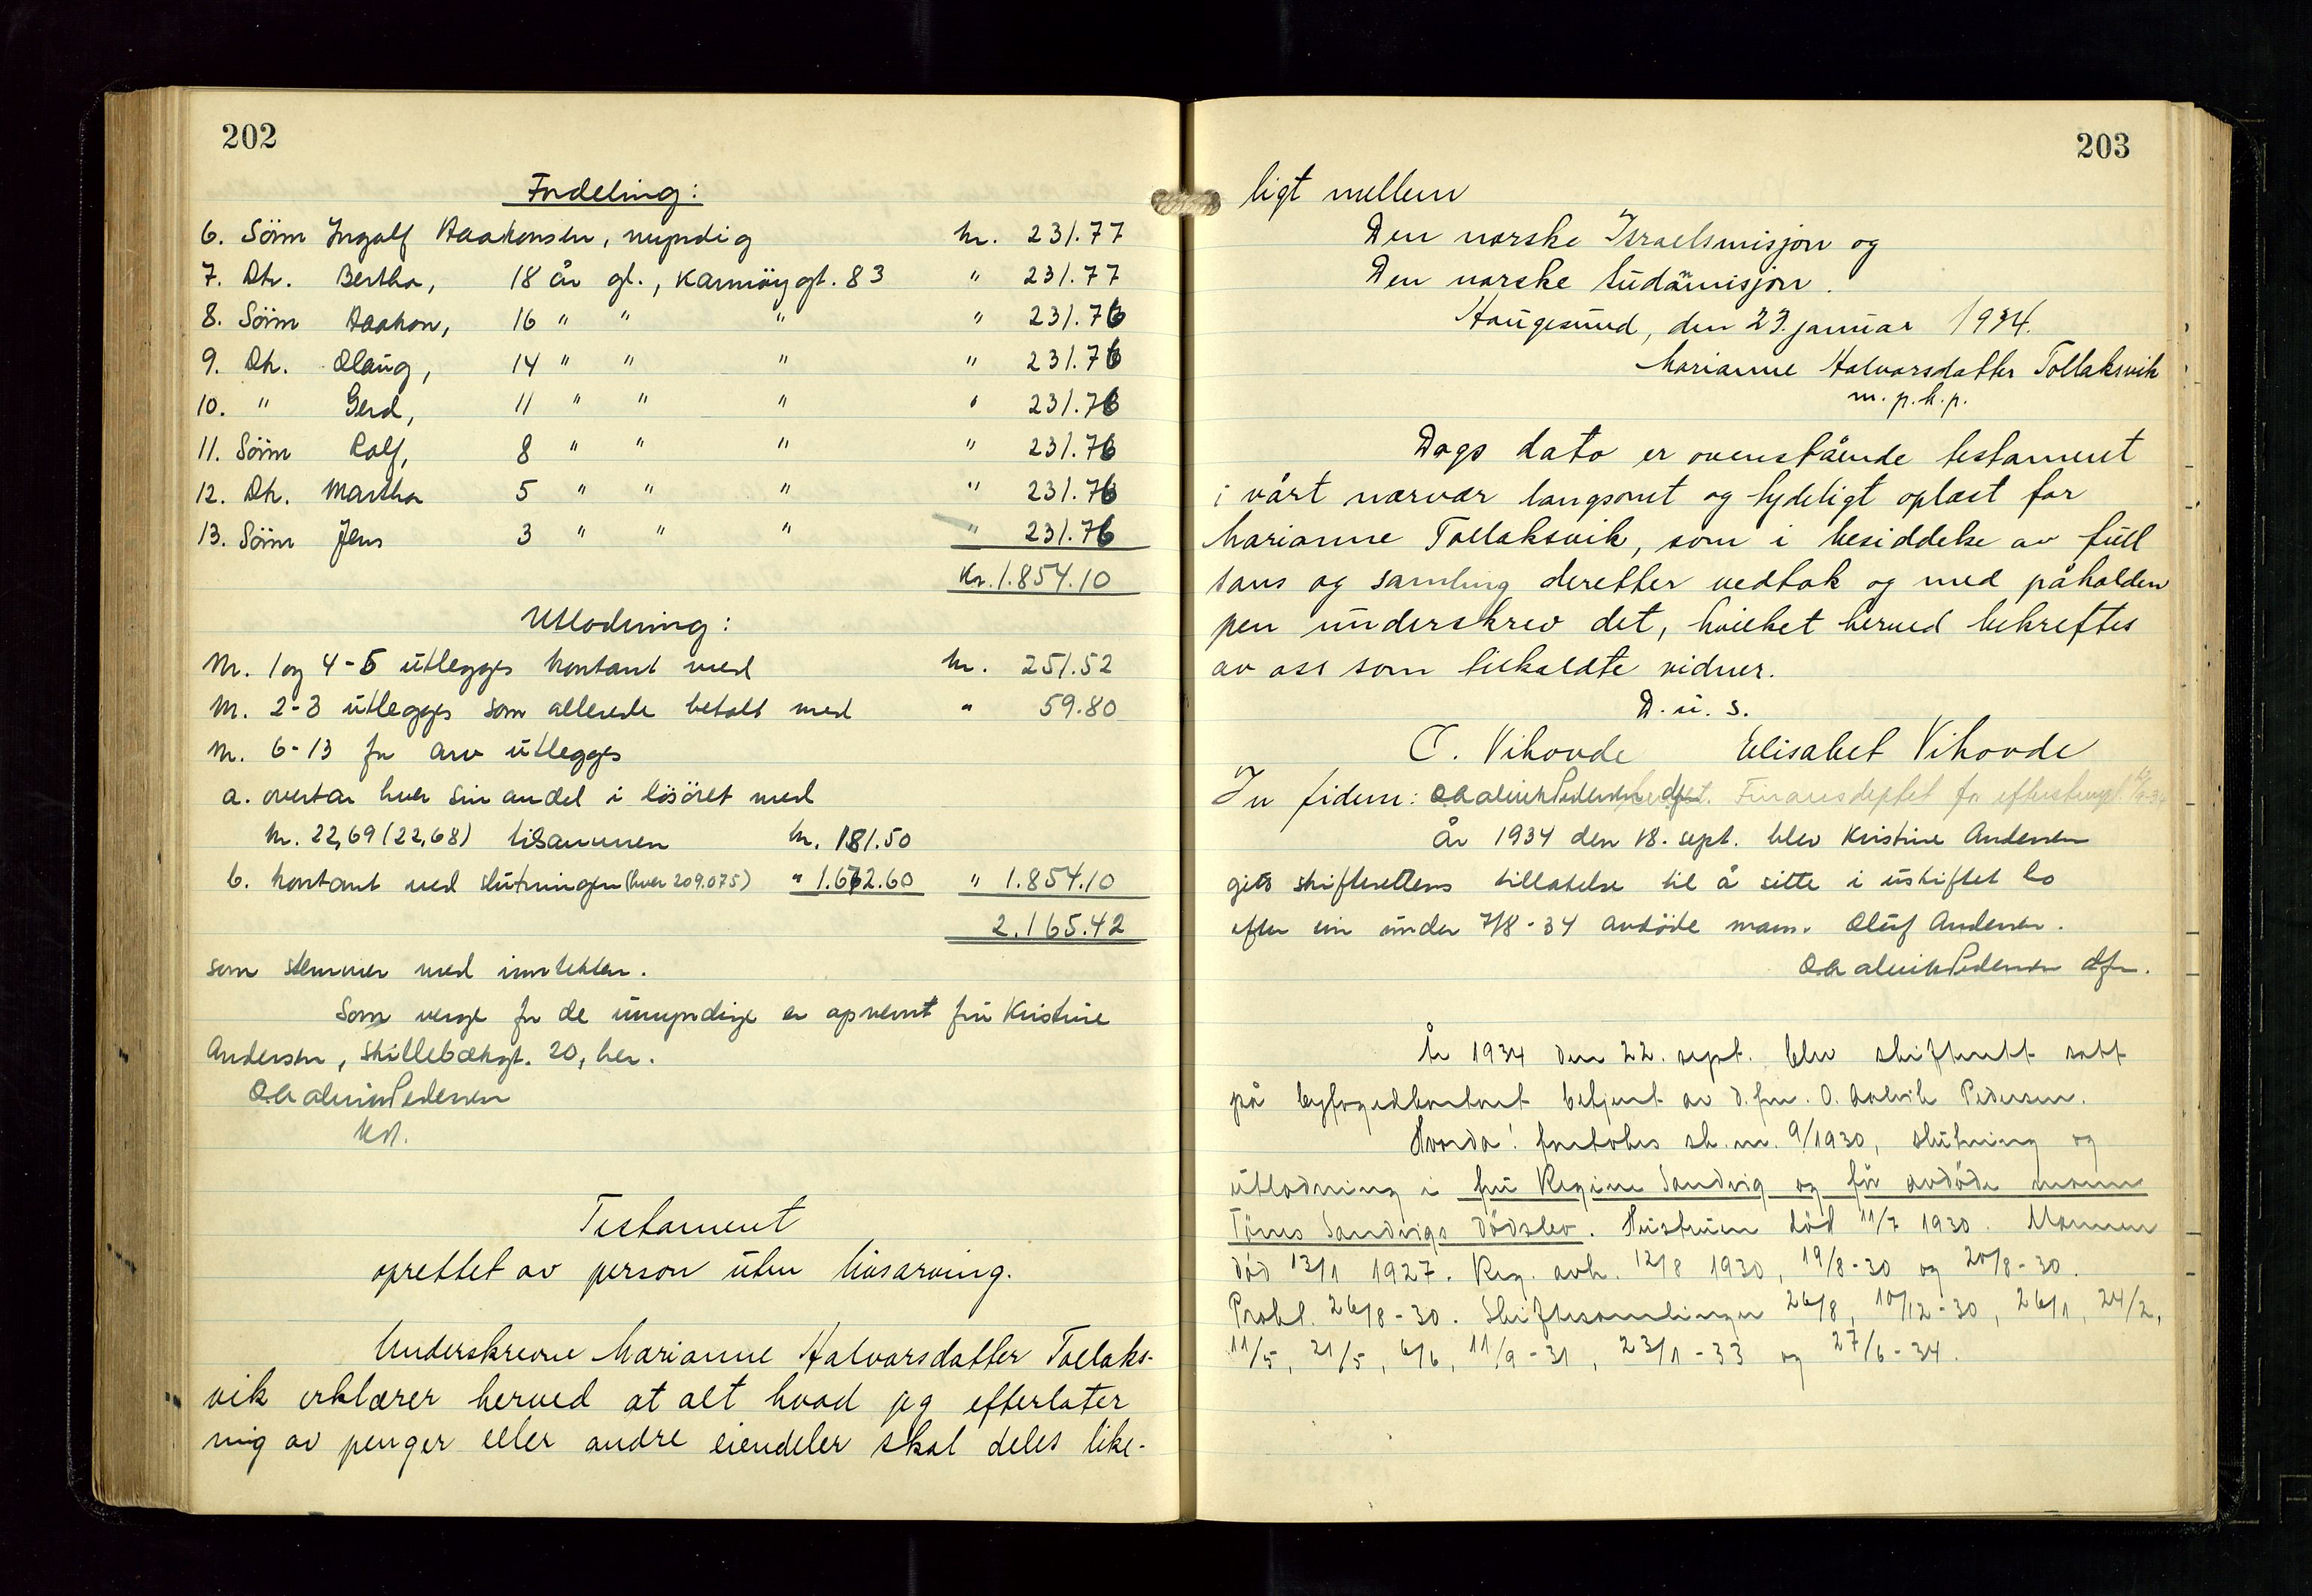 202
Fordeling:
6. Sönn Ingolf Haakonsen, myndig kr. 231.77
7. Dtr. Bertha, 18 år gl., Karmöygt. 83 " 231.77
8. Sönn Haakon, 16 " " " " 231.76
9. Dtr. Olaug, 14 " " " " 231.76
10. " Gerd, 11 " " " " 231.76
11. Sönn Rolf, 8 " " " " 231.76
12. Dtr. Martha 5 " " " " 231.76
13. Sönn Jens 3 " " " " 231.76
Kr. 1.854.10
Utlodning:
Nr. 1 og 4-5 utlegges kontant med kr. 251.52
Nr. 2-3 utlegges som allerede betalt med " 59.80
Nr. 6-13 for arv utlegges
a. overtar hver sin andel i lösöret med
kr. 22,69 (22,68) tilsammen kr. 181.50
b. kontant ved slutningen (hver 209.075) " 1.672.60 " 1.854.10
2.165.42
som stemmer med inntekten.
Som verge for de umyndige er opnevnt fru Kristine
Andersen, Skillebækgt. 20, her.
O. Aalvik Pedersen
Kst.
Testament
oprettet av person uten livsarving.
Underskrevne Marianne Halvorsdatter Tollaks-
vik erklærer herved at alt hvad jeg efterlater
mig av penger eller andre eiendeler skal deles like-
203
ligt mellem
Den norske Israelsmisjon og
Den norske Sudanmisjon.
Haugesund, den 23. januar 1934.
Marianne Halvorsdatter Tollaksvik
m. p. h. p.
Dags dato er ovenstående testament
i vårt nærvær langsomt og tydeligt oplæst for
Marianne Tollaksvik, som i besiddelse av full
sans og samling deretter vedtok og med påholden
pen underskrev det, hvilket herved bekreftes
av oss som tilkaldte vidner.
D. u. s.
O. Vihovde Elisabet Vihovde
In fidem: O. Aalvik Pedersen Finansdeptet for
År 1934 den 18. sept. blev Kristine Andersen
gitt skifterettens tillatelse til å sitte i uskiftet bo
efter sin under 7/8-34 avdöde mann Oluf Andersen.
O. Aalvik Pedersen dfm.
År 1934 den 22. sept. blev skifterett satt
på byfogedkontoret betjent av d.fm. O. Aalvik Pedersen.
Hvorda! foretokes sk. nr. 9/1930, slutning og
utlodning i fru Regine Sandvig og før avdöde mann
Tönes Sandvigs Dödsbo. Hustruen död 11/7 1930. Mannen
död 13/1 1927. Reg. avh. 12/8 1930, 19/8-30 og 20/8-30.
Prokl. 26/8-30. Skiftesamlinger 26/8, 10/12-30, 26/1, 24/2,
11/5, 21/5, 6/6, 11/9-31, 23/1-33 og 27/6-34.